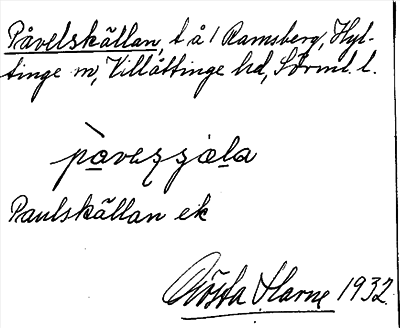 Påvelskällan, t å 1 Ramsberg, Hyl-
tinge sn, Villåttinge hd, Sörml. l.
Paulskällan ek
Gösta Harne 1932.